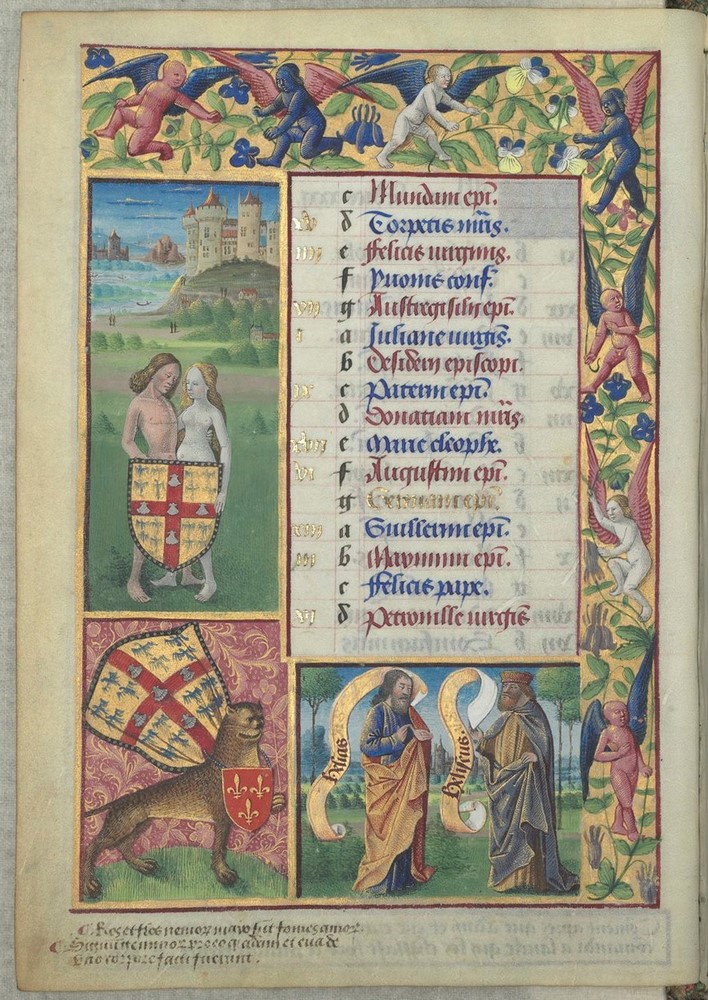 c Mundani epī.
d Torpetis m̄ris.
iiii e Felicis virginis.
f Yvonis conf.
g Austregisili epī.
i a Juliane virgīs.
b Desiderii episcopi.
ix c Paterni epī.
d Donatiani m̄ris.
xvii e Marie cleophe.
vi f Augustini epī.
g Germani epī.
a Guillermi epī.
iii b Maximini epī.
c Felicis pape.
d Petronille virginis
helias
heliseus
Ros et flos nemor mayo sūt fomes amor
et eva de
corpore facti fuerunt.